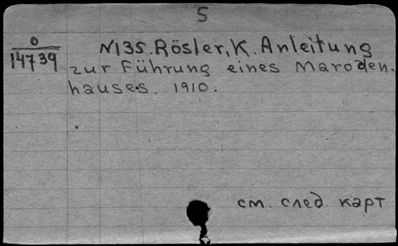 5
O
14739
N135. Rösler, K. Anleitung
zur Führung eines Maroden.
hauses. 1910.
см. след. карт